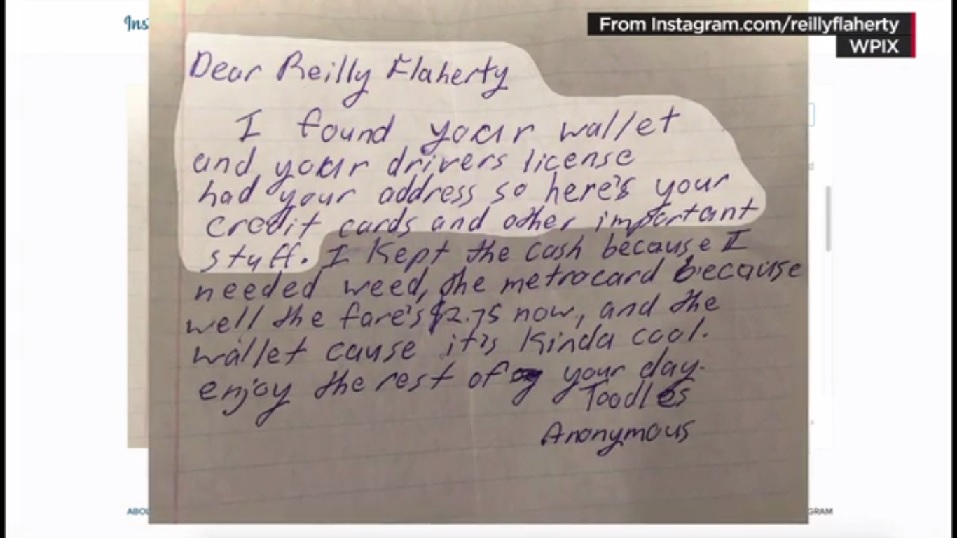 Ins
From Instagram.com/reillyflaherty
WPIX
Dear Reilly Flaherty
I found your wallet
and your drivers license
had your address so here's your
credit cards and other important
stuff. I kept the cash because I
needed weed, the metrocard because
well the fare's $2.75 now, and the
wallet cause it's kinda cool.
enjoy the rest of your day.
Toodles
Anonymous
ABOU
GRAM